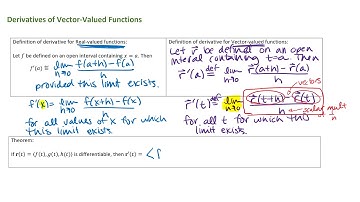 Derivatives of Vector-Valued Functions
Definition of derivative for Real-valued functions:
Let f be defined on an open interval containing x = a. Then
f'(a) def= lim h→0 f(a+h) - f(a) / h
provided this limit exists.
f'(x) = lim h→0 f(x+h) - f(x) / h
for all values of x for which
this limit exists.
Definition of derivative for Vector-valued functions:
Let r⃗ be defined on an open
interval containing t=a. Then
r⃗'(a) def= lim h→0 r⃗(a+h) - r⃗(a) / h
vectors
r⃗'(t) def= lim h→0 r⃗(t+h) - r⃗(t) / h
scalar mult
for all t for which this
limit exists.
Theorem:
If r(t) = ⟨f(t), g(t), h(t)⟩ is differentiable, then r'(t) = ⟨f